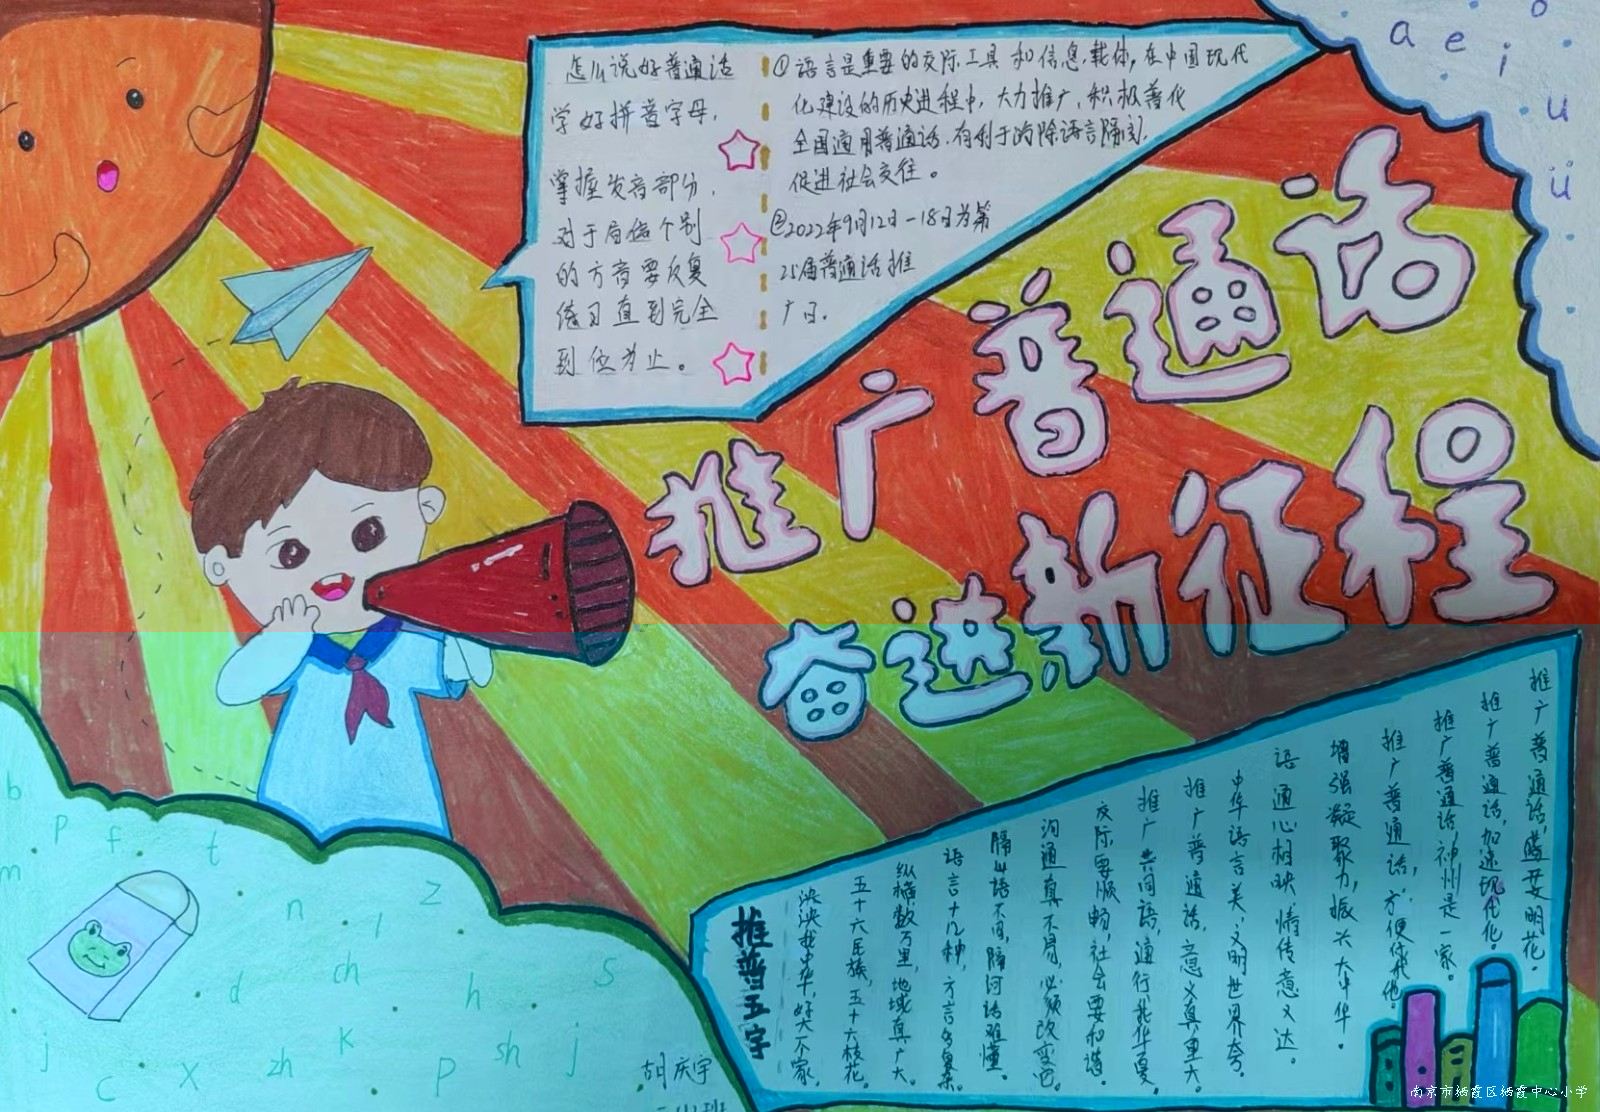 怎么说好普通话
学好拼音字母，
掌握发音部分，
对于后边个别
的方音要反复
练习直到完全
到位为止。
①语言是重要的交际工具和信息载体，在中国现代
化建设的历史进程中，大力推广、积极普化
全国通用普通话，有利于消除语言隔阂，
促进社会交往。
②2022年9月12日-18日为第
25届普通话推
广日.
a e i o u ü
推广普通话
奋进新征程
推广普通话，盛开文明花。
推广普通话，加速现代化。
推广普通话，神州是一家。
推广普通话，方便你我他。
增强凝聚力，振兴大中华。
语通心相映，情传意义达。
中华语言美，文明世界夸。
推广普通话，意义真重大。
推广共同语，通行我华夏。
交际要顺畅，社会要和谐。
沟通真不易，必须改变它。
隔山语不同，隔河话难懂。
语言十几种，方言多复杂。
纵横数万里，地域真广大。
五十六民族，五十六枝花。
泱泱我中华，好大一个家，
推普五字
b p f t
m
n l z
d ch h s
j c x zh k p sh j
胡庆宇
南京市栖霞区栖霞中心小学